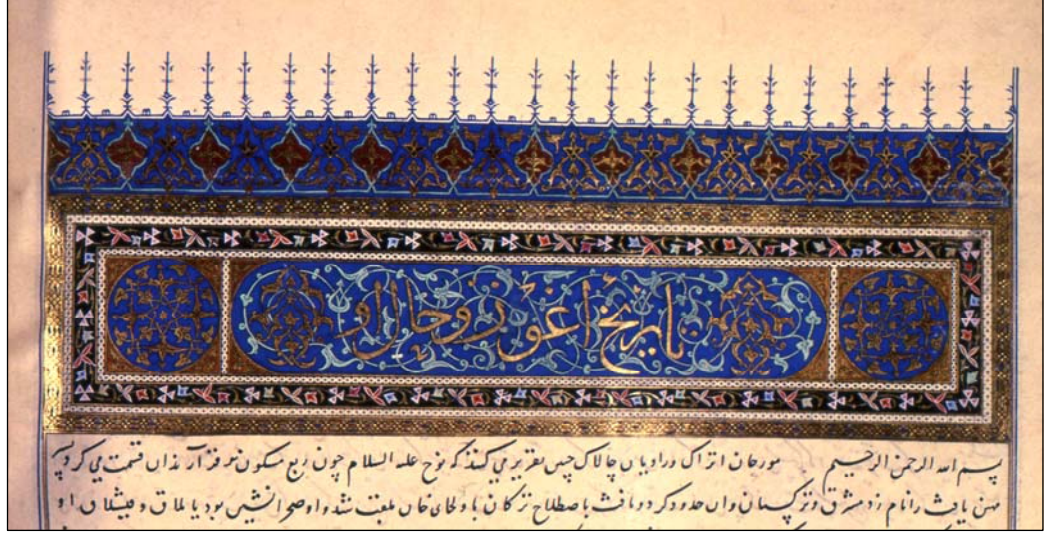 تاریخ اغوز و حال او
بسم الله الرحمن الرحیم مورخان اتراک و راویان چالاک چنین تقریر می کنند که نوح علیه السلام چون ربع مسکون بر فرزندان قسمت می کرد پسر
مهین یافث را نامزد مشرق و ترکستان و آن حدود کرد و یافث باصطلاح ترکان باولجای خان ملقب شد و او صحرانشین بود ییلاق و قیشلاق او